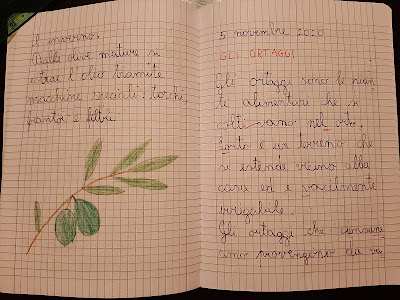 l inverno.
Dalle olive mature si
estrae l'olio tramite
macchine speciali: torchi,
frantoi e filtri.
5 novembre 2020
GLI ORTAGGI
Gli ortaggi sono le pian
te alimentari che si
colti vano nel orto.
L'orto è un terreno che
si estende vicino alla
casa ed è facilmente
irrigabile.
Gli ortaggi che consu
amo provengono da va